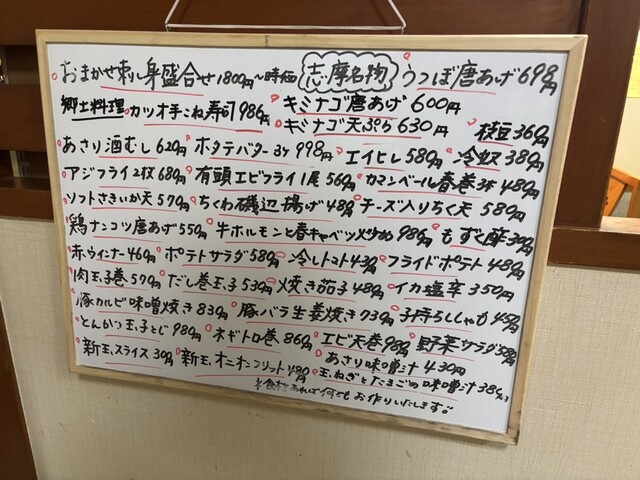 おまかせ刺し身盛合せ 1800円〜時価 志摩名物 うつぼ唐あげ 698円
郷土料理 カツオ手こね寿司 986円 キミナゴ唐あげ 600円
キミナゴ天ぷら 630円 枝豆 360円
あさり酒むし 620円 ホタテバター 3ヶ 998円 エイヒレ 580円 冷奴 380円
アジフライ2枚 680円 有頭エビフライ1尾 560円 カマンベール春巻 3本 480円
ソフトさきいか天 570円 ちくわ磯辺揚げ 480円 チーズ入りちく天 580円
鶏ナンコツ唐あげ 550円 牛ホルモンと春キャベツ炒め 986円 もずく酢 300円
赤ウインナー 460円 ポテトサラダ 580円 冷しトマト 430円 フライドポテト 480円
肉玉子巻 570円 だし巻玉子 530円 焼き茄子 480円 イカ塩辛 350円
豚カルビ味噌焼き 830円 豚バラ生姜焼き 930円 子持ちししゃも 450円
とんかつ玉子とじ 980円 ネギトロ巻 860円 エビ天巻 980円 野菜サラダ
新玉スライス 300円 新玉オニオンフリット 480円 あさり味噌汁 430円
玉ねぎとたまごの味噌汁
※食材あれば何でもお作りいたします。